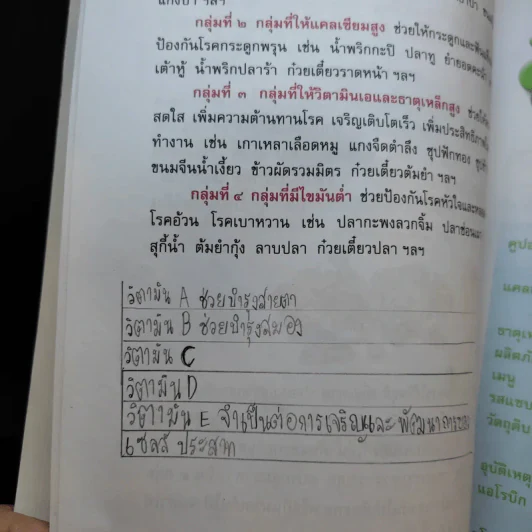 แกงป่า ฯลฯ
กลุ่มที่ ๒ กลุ่มที่ให้แคลเซียมสูง ช่วยให้กระดูกและฟัน
ป้องกันโรคกระดูกพรุน เช่น น้ำพริกกะปิ ปลาทู ยำยอดคะน้า
เต้าหู้ น้ำพริกปลาร้า ก๋วยเตี๋ยวราดหน้า ฯลฯ
กลุ่มที่ ๓ กลุ่มที่ให้วิตามินเอและธาตุเหล็กสูง
สดใส เพิ่มความต้านทานโรค เจริญเติบโตเร็ว เพิ่มประสิทธิภาพ
ทำงาน เช่น เกาเหลาเลือดหมู แกงจืดตำลึง ซุปฟักทอง
ขนมจีนน้ำเงี้ยว ข้าวผัดรวมมิตร ก๋วยเตี๋ยวต้มยำ ฯลฯ
กลุ่มที่ ๔ กลุ่มที่มีไขมันต่ำ ช่วยป้องกันโรคหัวใจและ
โรคอ้วน โรคเบาหวาน เช่น ปลากะพงลวกจิ้ม
สุกี้น้ำ ต้มยำกุ้ง ลาบปลา ก๋วยเตี๋ยวปลา ฯลฯ
วิตามิน A ช่วยบำรุงสายตา
วิตามิน B ช่วยบำรุงสมอง
วิตามิน C
วิตามิน D
วิตามิน E จำเป็นต่อการเจริญและ พัฒนาการของ
เซลล์ ประสาท
คูปอ
แคล
ธาตุเห
ผลิตภั
เมนู
รสแซบ
วัตถุดิบ
อุบัติเหตุ
แอโรบิก